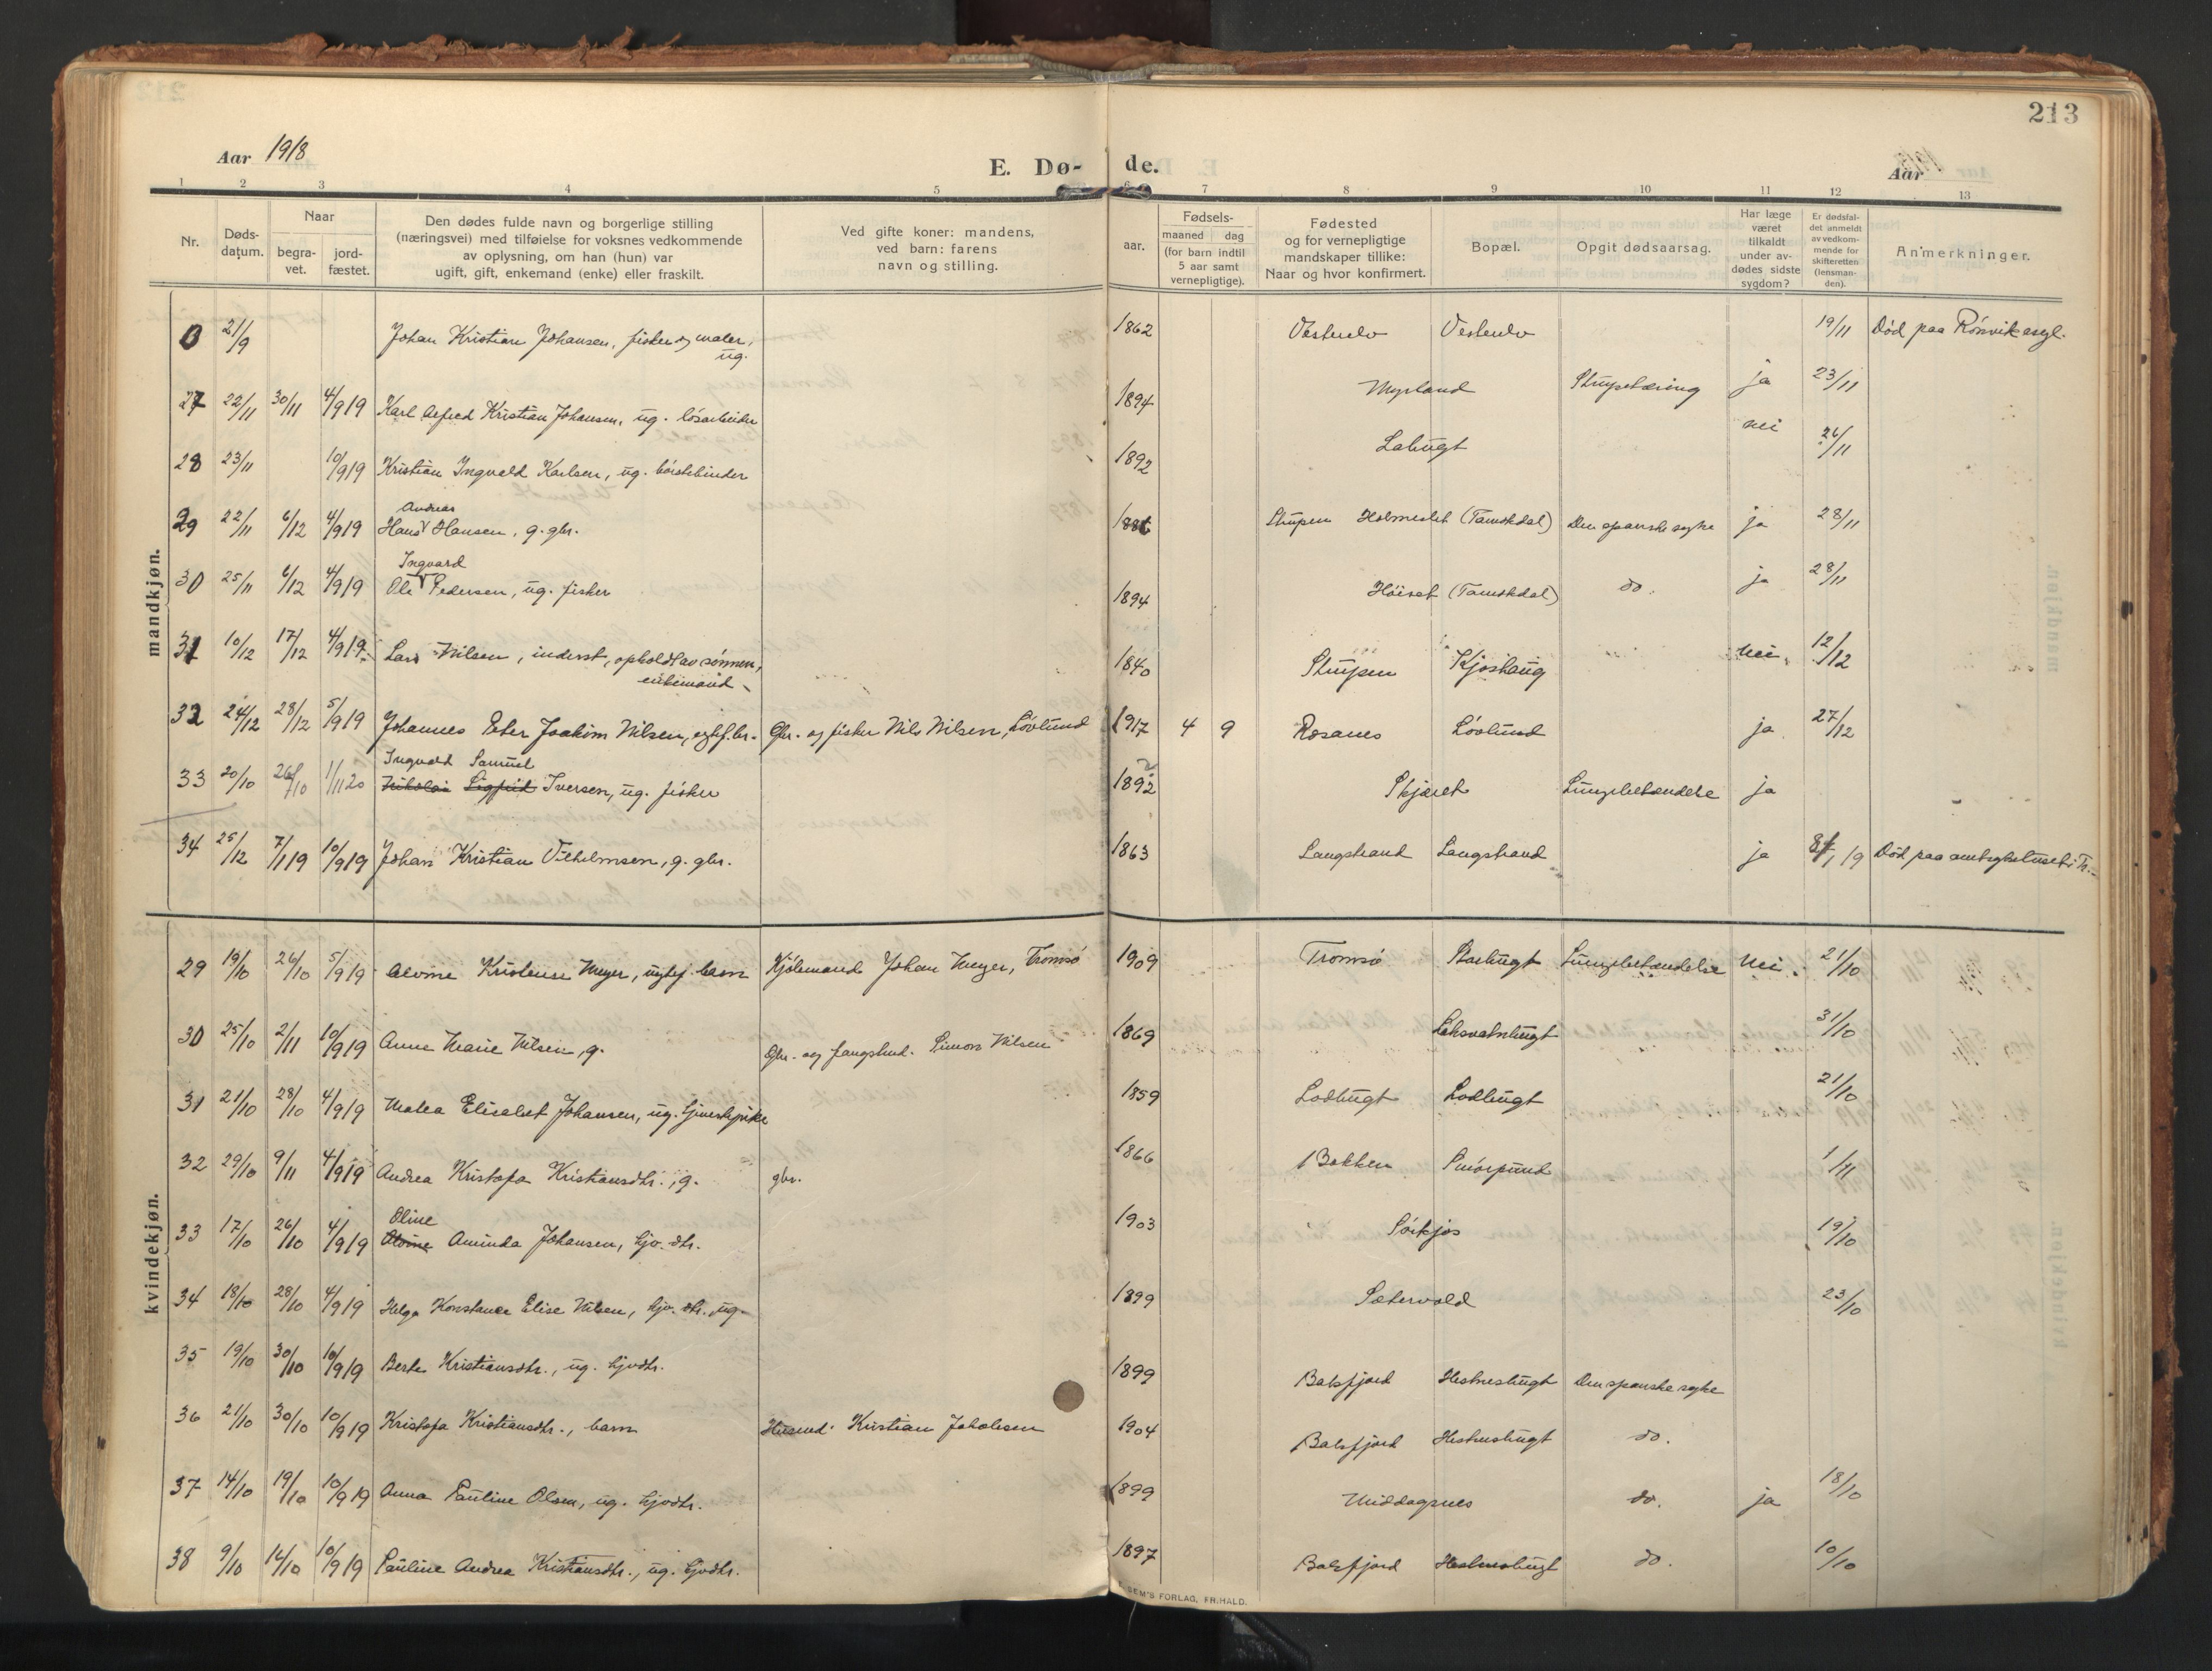 213
Aar 1918
E. Dø-
de.
Aar
1 2 3 4 5 6 7 8 9 10 11 12 13
Nr.
Døds-
datum.
Naar
begra-
vet.
jord-
fæstet.
Den dødes fulde navn og borgerlige stilling
(næringsvei) med tilføielse for voksnes vedkommende
av oplysning, om han (hun) var
ugift, gift, enkemand (enke) eller fraskilt.
Ved gifte koner: mandens,
ved barn: farens
navn og stilling.
aar.
Fødsels-
maaned dag
(for barn indtil
5 aar samt
vernepligtige).
Fødested
og for vernepligtige
mandskaper tillike:
Naar og hvor konfirmert.
Bopæl.
Opgit dødsaarsag.
Har læge
været
tilkaldt
under av-
dødes sidste
sygdom?
Er dødsfal-
det anmeldt
av vedkom-
mende for
skifteretten
(lensman-
den).
Anmerkninger.
mandkjøn.
0 21/9 Johan Kristian Johansen, fisker og maler, ug. 1862 19/11 Død paa Rønvik asyl.
27 22/11 30/11 4/919 Karl Alfred Kristian Johansen, ug. løsarbeider 1894 Myrland ja 23/11
28 23/11 10/919 Kristian Ingvald Karlsen, ug. børstebinder 1892 nei 26/11
Andreas
29 22/11 6/12 4/919 Hans Hansen, g. gbr. Holmeslet (Tamokdal) Den spanske syke ja 28/11
Ingvard
30 25/11 6/12 4/919 Ole Pedersen, ug. fisker 1894 (Tamokdal) do. ja 28/11
31 10/12 17/12 4/919 Lars Nilsen, inderst, opholdt av sønnen, enkemand 1840 nei 12/12
32 24/12 28/12 5/919 Johannes Peter Joakim Nilsen, Gbr. og fisker Nils Nilsen, Løvlund 1917 4 9 Rosanes Løvlund ja 27/12
Ingvald Samuel
33 20/10 26/10 1/1120 Nikolai Sigfrid Iversen, ug. fisker 1892 Skjæret Lungebetændelse ja
34 25/12 7/119 10/919 Johan Kristian Vilhelmsen, g. gbr. 1863 Langstrand Langstrand ja 19 Død paa amtsykehuset i Tr.
kvindekjøn.
29 19/10 26/10 5/919 Alvine Kristense Meyer, barn Johan Meyer, Tromsø 1909 Tromsø Lungebetændelse nei 21/10
30 25/10 2/11 10/919 Anne Marie Nilsen, g. Gbr. og fangstmd. Simon Nilsen 1869 31/10
31 21/10 28/10 4/919 Malea Elisabet Johansen, ug. tjenestepike 1859 Lodbugt Lodbugt 21/10
32 29/10 9/11 4/919 Andrea Kristofa Kristiansdtr., g. gbr. 1866 Bakken 1/11
Oline
33 17/10 26/10 4/919 Alvine Aminda Johansen, hjv. dtr. 1903 Sørkjos 19/10
34 18/10 28/10 4/919 Helga Konstance Elise Nilsen, hjv. dtr. ug. 1899 Sætervold 23/10
35 19/10 30/10 10/919 Berte Kristiansdtr., ug. hjvdtr. 1899 Balsfjord Hestnesbugt Den spanske syke
36 21/10 30/10 10/919 Kristofa Kristiansdtr., barn Husmd. Kristian Jakobsen 1904 Balsfjord Hestnesbugt do.
37 14/10 19/10 10/919 Anna Pauline Olsen, ug. hjvdtr. 1899 Middagsnes do. ja 18/10
38 9/10 16/10 10/919 Pauline Andrea Kristiansdtr., ug. hjvdtr. 1897 Balsfjord Hestnesbugt do. 10/10
SEM'S FORLAG, FR.HALD.